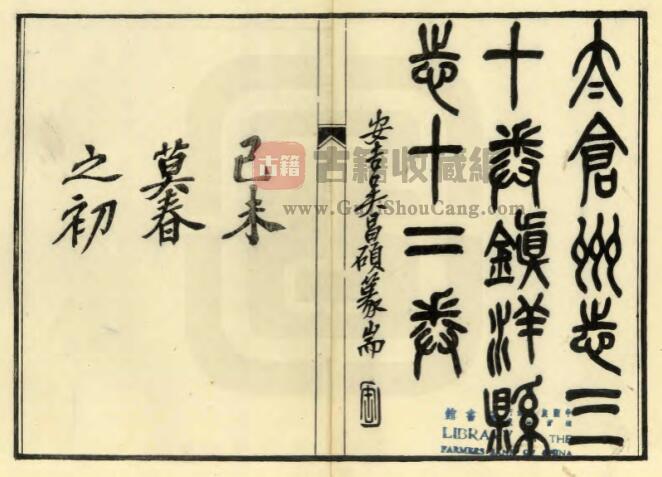 太倉州志三
十卷鎮洋縣
志十二卷
安吉吳昌碩篆耑
己未
莫春
之初
古籍
古籍收藏
www.GujiShouCang.com
書館
LIBRARY THE
FARMERS BANK OF CHINA